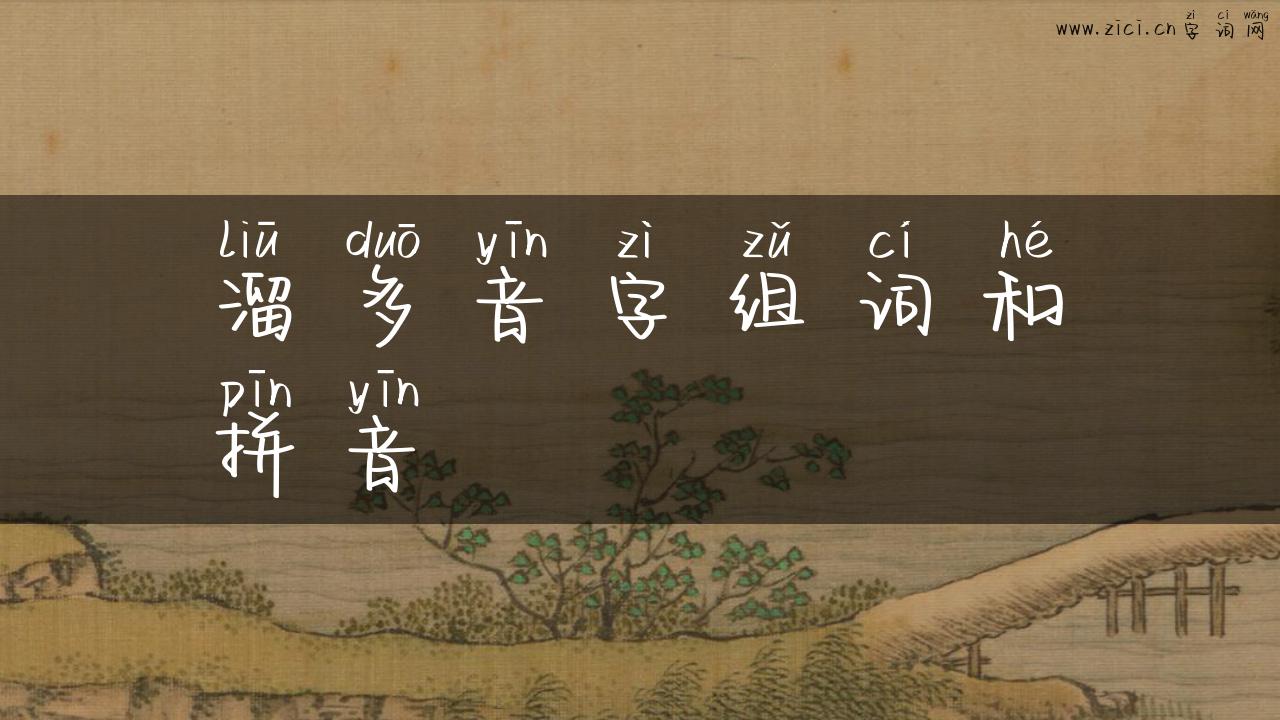 zì cí wǎng
www.zici.cn 字词网
liū duō yīn zì zǔ cí hé
溜多音字组词和
pīn yīn
拼音